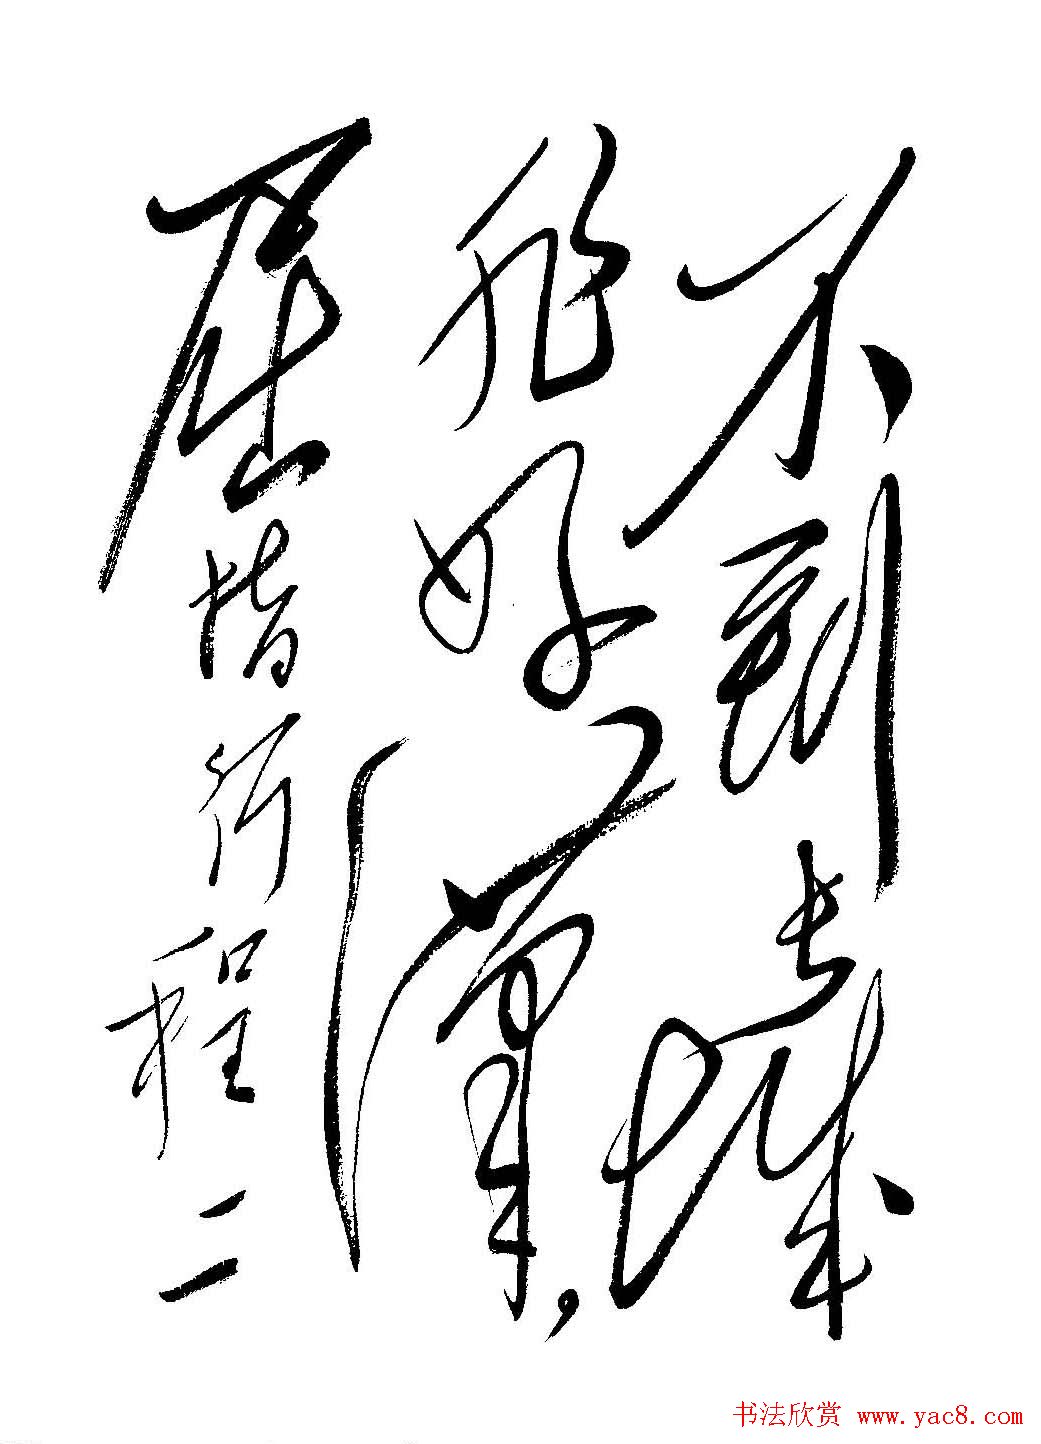 不到長城
非好漢，
屈指行程二
书法欣赏 www.yac8.com